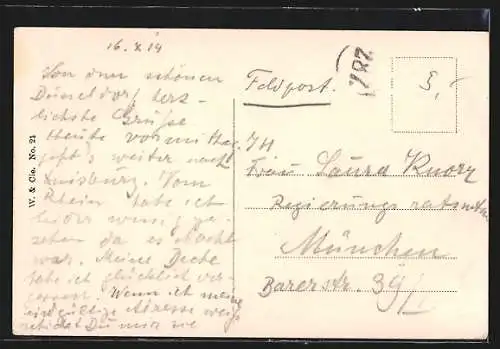 16. X 14
Von dem schönen
Düsseldorf herz-
lichste Grüße
Heute vormittag
geht's weiter nach
Duisburg. Vom
Rhein habe ich
leider wenig ge-
sehen da es Nacht
war. Meine Decke
habe ich glücklich ver-
gessen. Wenn ich meine
endgültige Adresse weiß
Du mir
W. & Cie. No. 21
Feldpost.
3,-
Frau Laura Knorz
Regierungsrats
München
Barerstr. 39/I